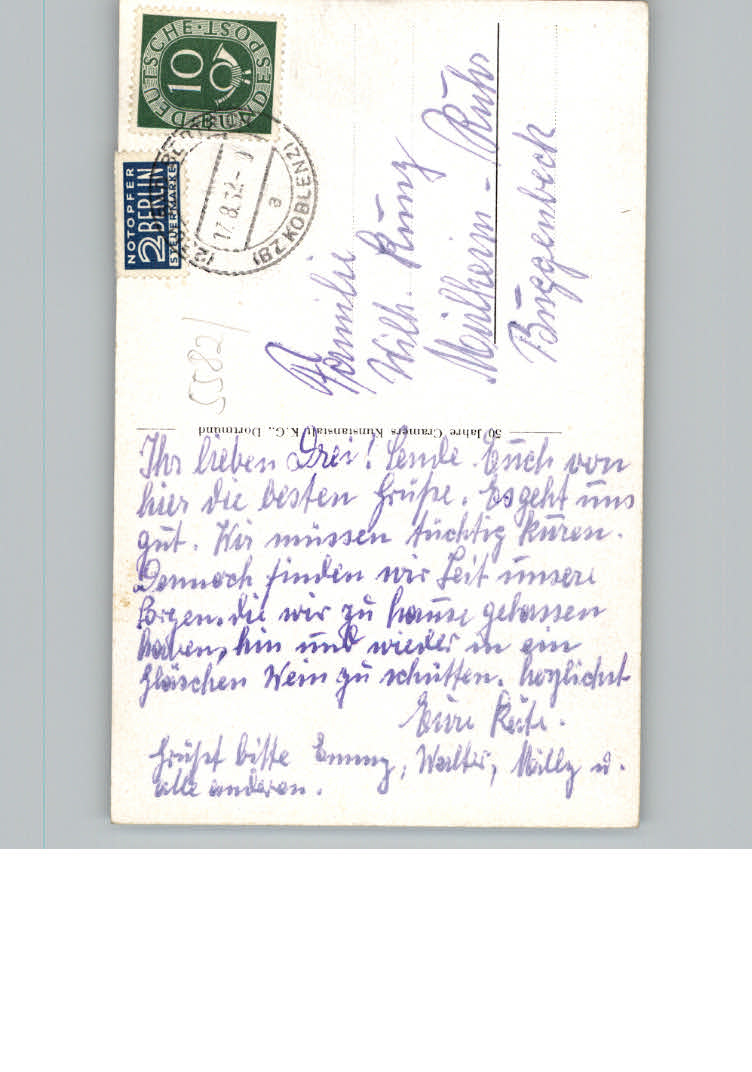 Ihr lieben Drei! Sende Euch von
hier die besten Grüße. Es geht uns
gut. Wir müssen tüchtig kuren.
Dennoch finden wir Zeit unsere
Sorgen, die wir zu hause gelassen
haben, hin und wieder in ein
Gläschen Wein zu schütten. Herzlichst
Eure
Grüßt bitte Emmy, Walter, Willy u.
alle anderen.
Familie
Wilh. Kunz
Mülheim-Ruhr
Buggenbeck
50 Jahre Cramers Kunstanstalt K.G., Dortmund
5582
DEUTSCHE BUNDESPOST
10
NOTOPFER
2 BERLIN
STEUERMARKE
17.8.53
a
KOBLENZ